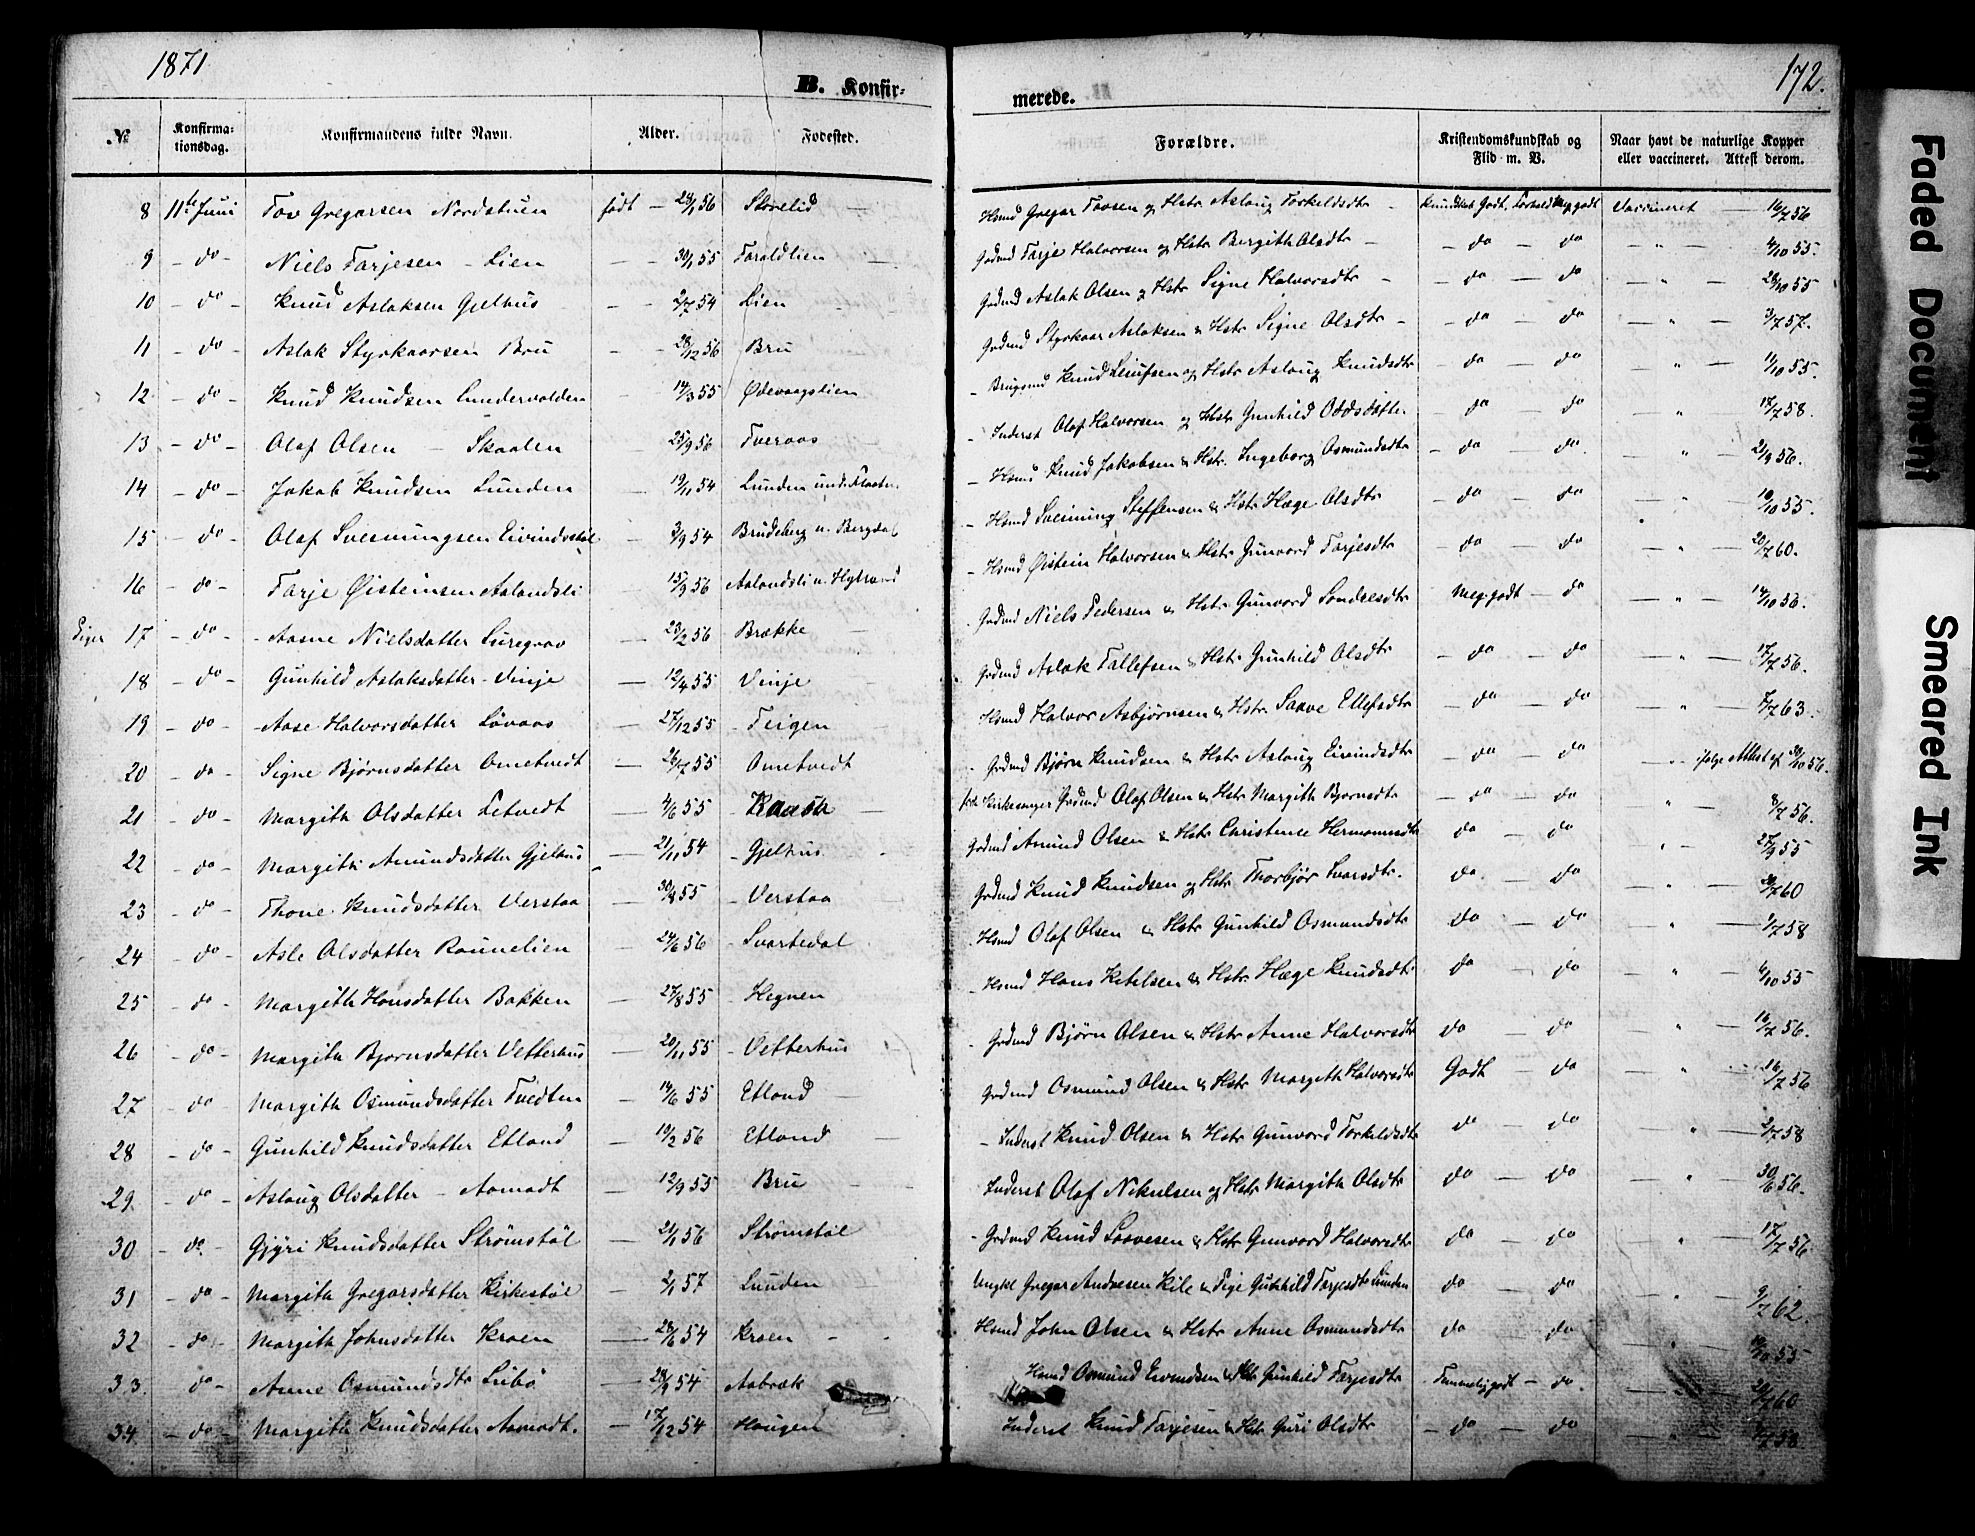 1871
172.
B. Konfir-
merede.
№ Konfirma-tionsdag. Konfirmandens fulde Navn. Alder. Fødested. Forældre. Kristendomskundskab og Flid m. V. Naar havt de naturlige Kopper eller vaccineret. Attest derom.
8 11te Juni Tov Gregarsen Nordstuen født — 28/1 56 Storelid — Hsmd Gregar Tovsen og Hstr Aslaug Torkildsdtr - Kundskab Godt. Forhold Megodt Vaccineret 16/7 56
9 - do - Niels Tarjesen - Lien — 30/1 55 Taraldlien — Grdmd Tarje Halvorsen og Hstr Bergith Olsdtr — - do — do — " — 4/10 55.
10 - do - Knud Aslaksen Gjelhus - - 2/7 54 Lien - Grdmd Aslak Olsen og Hstr Signe Halvorsdtr - - do — do — " — 28/10 55
11 - do - Aslak Styrkaarsen Bru - - 28/12 56 Bru Grdmd Styrkaar Aslaksen & Hstr Signe Olsdtr - - do — do — " — 3/7 57.
12 - do - Knud Knudsen Lundervolden — 14/3 55 Ødevaagslien - Brugsmd Knud Leiufsen og Hstr Aslaug Knudsdtr - do — do — " — 11/10 55.
13 - do - Olaf Olsen — Skaalen — 25/9 56 Tveraas — - Inderst Olaf Halvorsen og Hstr Gunhild Oddsdatter do — do — " — 17/7 58.
14 - do - Jakob Knudsen Lunden — 19/11 54 Lunden und. Flaaten - Hsmd Knud Jakobsen & Hstr. Ingeborg Osmundsdtr - do — do. — " — 21/9 56.
15 - do - Olaf Sveinungsen Eivindstøl — 3/9 54 Brudeberg u. Bergdal - Hsmd Sveinung Steffensen & Hstr Hæge Olsdtr - do — do — " — 10/10 55.
16 - do - Tarje Øisteinsen Aslandsli — 15/9 56 Aslandsli u. Hylland - Hsmd Øistein Halvorsen & Hstr Gunvord Tarjesdtr - do — do — " — 20/7 60.
Eiger 17 - do - Aasne Nielsdatter Suregrav — 23/2 56 Brække — Grdmd Niels Pedersen & Hstr Gunvord Sondresdtr Meg. godt - do — " — 14/10 56.
18 - do - Gunhild Aslaksdatter - Vinje — 12/4 55 Vinje — Grdmd Aslak Tallefsen & Hstr Gunhild Olsdtr - do — do — " — 17/7 56.
19 - do - Aase Halvorsdatter Løvaas — 27/12 55 - Teigen — Hsmd Halvor Asbjørnsen & Hstr Saave Ellefsdtr - do — do — " — 7/7 63.
20 - do - Signe Bjørnsdatter Ometvedt — 26/7 55 Ometvedt - Grdmd Bjørn Knudsen & Hstr Aslaug Eivindsdtr - do — do — " ifølge Attest af 30/10 56.
21 - do - Margith Olsdatter Letvedt — 4/6 55 - Kaasa — Kirkesanger Grdmd Olaf Olsen & Hstr Margith Bjørnsdtr - do — do " — 8/7 56.
22 - do - Margith Amundsdatter Gjelhus — 21/11 54 - Gjelhus Grdmd Amund Olsen & Hstr Christence Hermannsdtr do — do " — 27/9 55
23 - do - Thone Knudsdatter Verstaa — 30/8 55 - Verstaa Grdmd Knud Knudsen og Hstr Thorbjør Ivarsdtr. do — do — " — 20/7 60
24 - do - Asle Olsdatter Raunelien — 24/6 56 - Svartedal - Hsmd Olaf Olsen & Hstr Gunhild Osmundsdtr do — do — " — 1/7 58
25 - do - Margith Hansdatter Bakken — 27/8 55 - Hegnen - Hsmd Hans Ketilsen & Hstr Hæge Knudsdtr do — do — " — 4/10 55
26 - do - Margith Bjørnsdatter Vetterhus — 20/11 55 - Vetterhus - Grdmd Bjørn Olsen & Hstr Anne Halvorsdtr do — do " — 16/7 56.
27 - do - Margith Osmundsdatter Tvedten — 14/6 55 - Etland — Grdmd Osmund Olsen & Hstr Margith Halvorsdtr Godt - do " — 16/7 56
28 - do - Gunhild Knudsdatter Etland — 10/2 56 - Etland — - Inderst Knud Olsen & Hstr Gunvord Torkildsdtr do — do — " — 2/7 58
29. - do - Aslaug Olsdatter - Aamodt — 12/9 55 Bru — Inderst Olaf Nikulsen og Hstr Margith Olsdtr do — do — " — 30/6 56.
30 - do - Gjyri Knudsdatter Strømstøl — 21/1 56 Strømstøl - Grdmd Knud Saavesen & Hstr Gunvord Halvorsdtr do — do " — 17/7 56
31 - do - Margith Gregarsdatter Kirkestøl — 2/1 57 Lunden Ungkl Gregar Andresen Kile & Pige Gunhild Tarjesdtr Lunden do — do — " — 9/7 62.
32 - do - Margith Johnsdatter Kroen — 28/6 54 Kroen - Hsmd John Olsen & Hstr Anne Osmundsdtr do — do — " 10/10 55
33. - do - Anne Osmundsdtr Libø — 28/9 54 Aabræk Hsmd Osmund Eivindsen & Hstr Gunhild Tarjesdtr - Temmelig godt - do. — " 20/7 60
34. - do - Margith Knudsdatter Aamodt. — 17/12 54 Haugen Inderst Knud Tarjesen & Hstr Guri Olsdtr - do — do — " 58
Faded Document
Smeared Ink